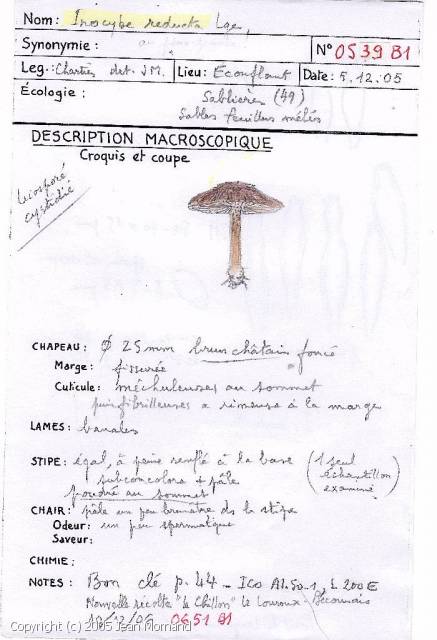 Nom: Inocybe reducta Lge,
Synonymie:
N° 0539 B1
Leg.: Chartier det. J M. Lieu: Ecouflant Date: 5.12.05
Écologie: Sablières (49)
Sables feuillus mêlés
DESCRIPTION MACROSCOPIQUE
Croquis et coupe
leiosporé
cystidié
CHAPEAU: Ø 25 mm brun châtain foncé
Marge: fissurée
Cuticule: méchuleuses au sommet
puis fibrilleuses à rimeuse à la marge
LAMES: banales
STIPE: égal, à peine renflé à la base
(1 seul échantillon examiné)
subconcolore + pâle
poudré au sommet
CHAIR: pâle un peu brunâtre ds le stipe
Odeur: un peu spermatique
Saveur:
CHIMIE:
NOTES: Bon clé p. 44 - ICO
Nouvelle récolte "le Châtillon" le Louroux-Béconnais
10/12/06 0651 B1
Copyright (c) 2005 Jean Mornand